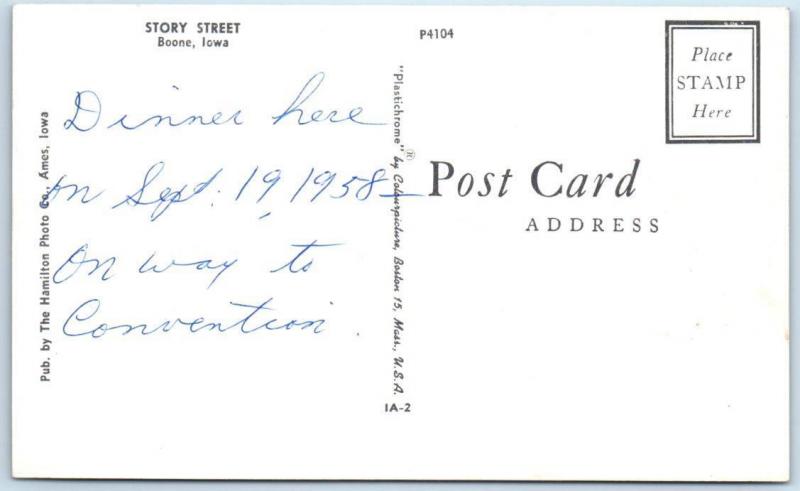 STORY STREET
Boone, Iowa
P4104
Place
STAMP
Here
Dinner here
on Sept. 19, 1958 —
On way to
Convention.
Post Card
ADDRESS
Pub. by The Hamilton Photo Co., Ames, Iowa
"Plastichrome"® by Colourpicture, Boston 15, Mass., U.S.A.
IA-2